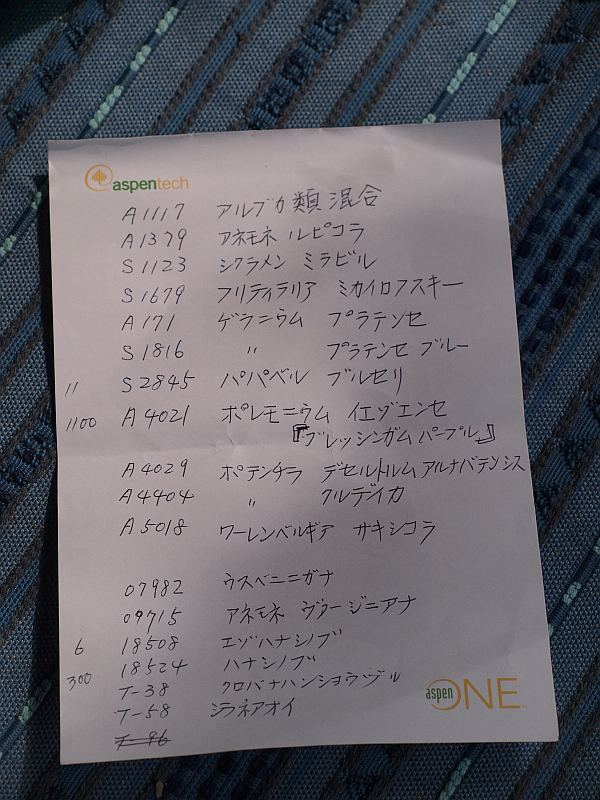 aspentech
A1117 アルブカ類混合
A1379 アネモネ ルピコラ
S1123 シクラメン ミラビル
S1679 フリティラリア ミカイロフスキー
A171 ゲラニウム プラテンセ
S1816 〃 プラテンセ ブルー
11 S2845 パパベル ブルセリ
1100 A4021 ポレモニウム イエゾエンセ
『ブレッシンガムパープル』
A4029 ポテンチラ デセルトルム アルナバデンシス
A4404 〃 クルデイカ
A5018 ワーレンベルギア サキシコラ
07982 ウスベニニガナ
09715 アネモネ ヴァージニアナ
6 18508 エゾハナシノブ
300 18524 ハナシノブ
T-38 クロバナハンショウヅル
T-58 シラネアオイ
T-96
aspenONE